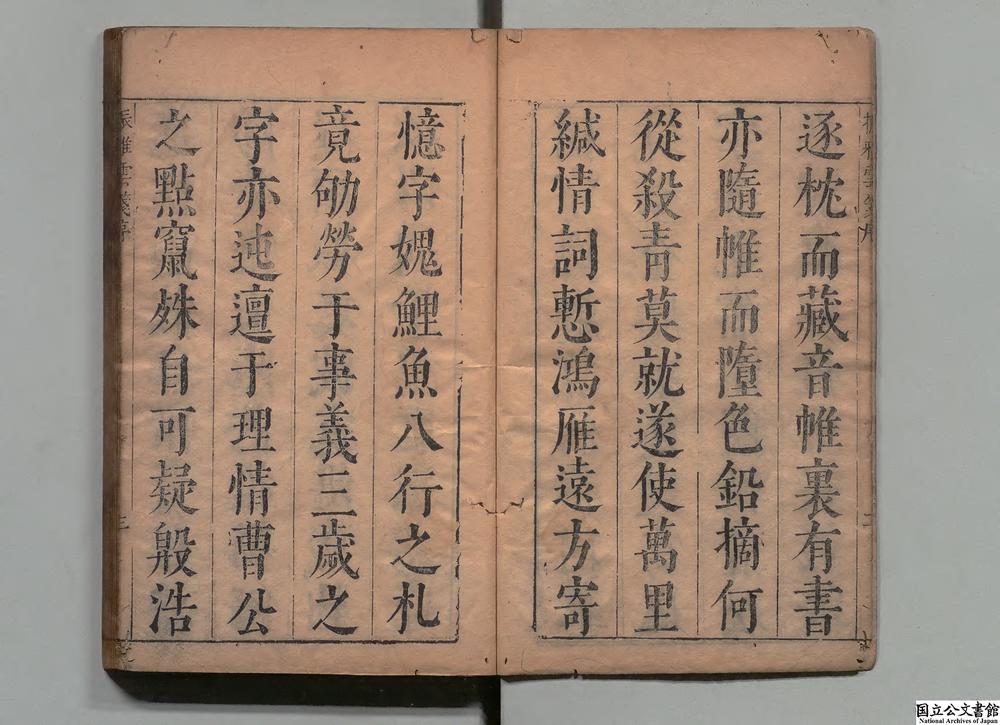 振雅雲箋序
二
逐枕而藏音帷裏有書
亦隨帷而墮色鉛摘何
從殺青莫就遂使萬里
緘情詞慙鴻雁遠方寄
憶字媿鯉魚八行之札
竟劬勞于事義三歲之
字亦迍邅于理情曹公
之點竄殊自可疑殷浩
振雅雲箋序
三
国立公文書館
National Archives of Japan